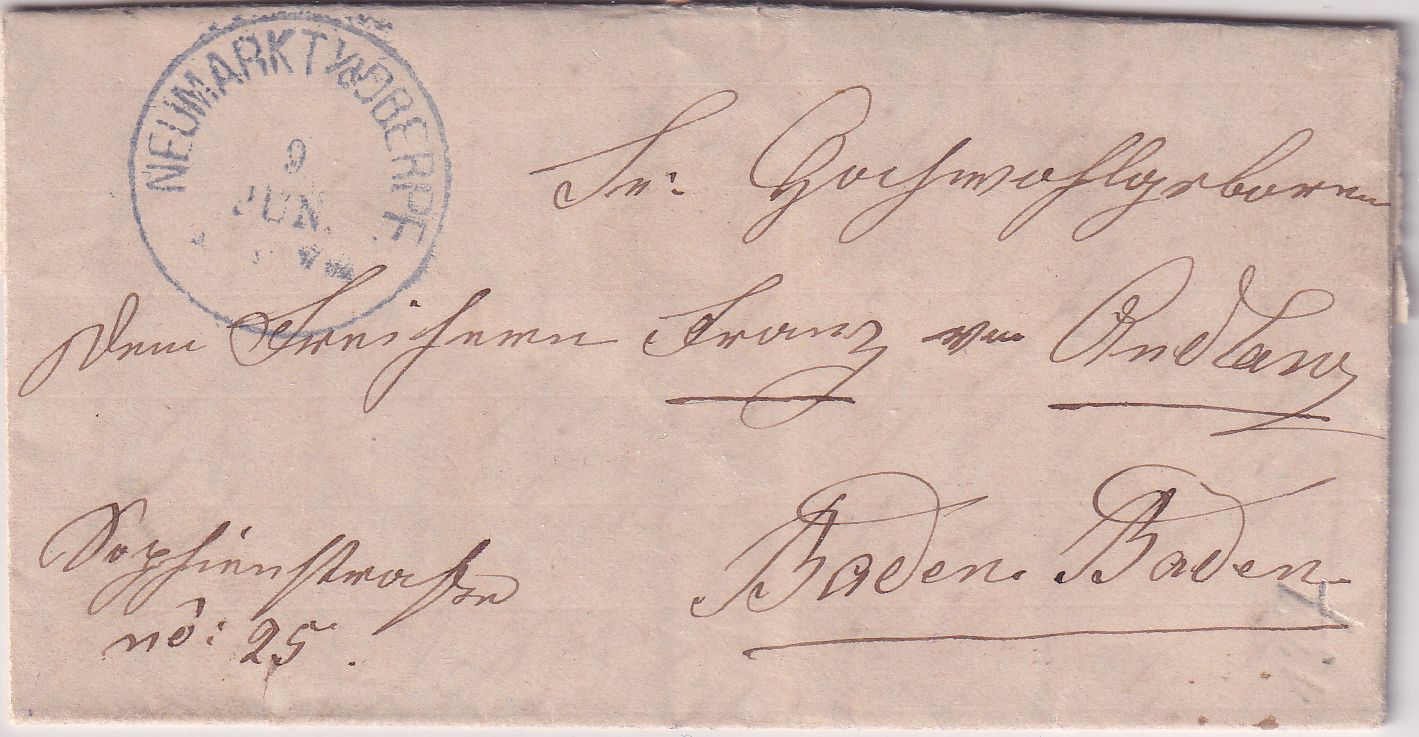 NEUMARKT I/D OBERPF.
9
JUN.
Sr: Hochwohlgeboren
dem Freiherrn Franz von Andlau
Baden-Baden.
Sophienstraße
no: 25.